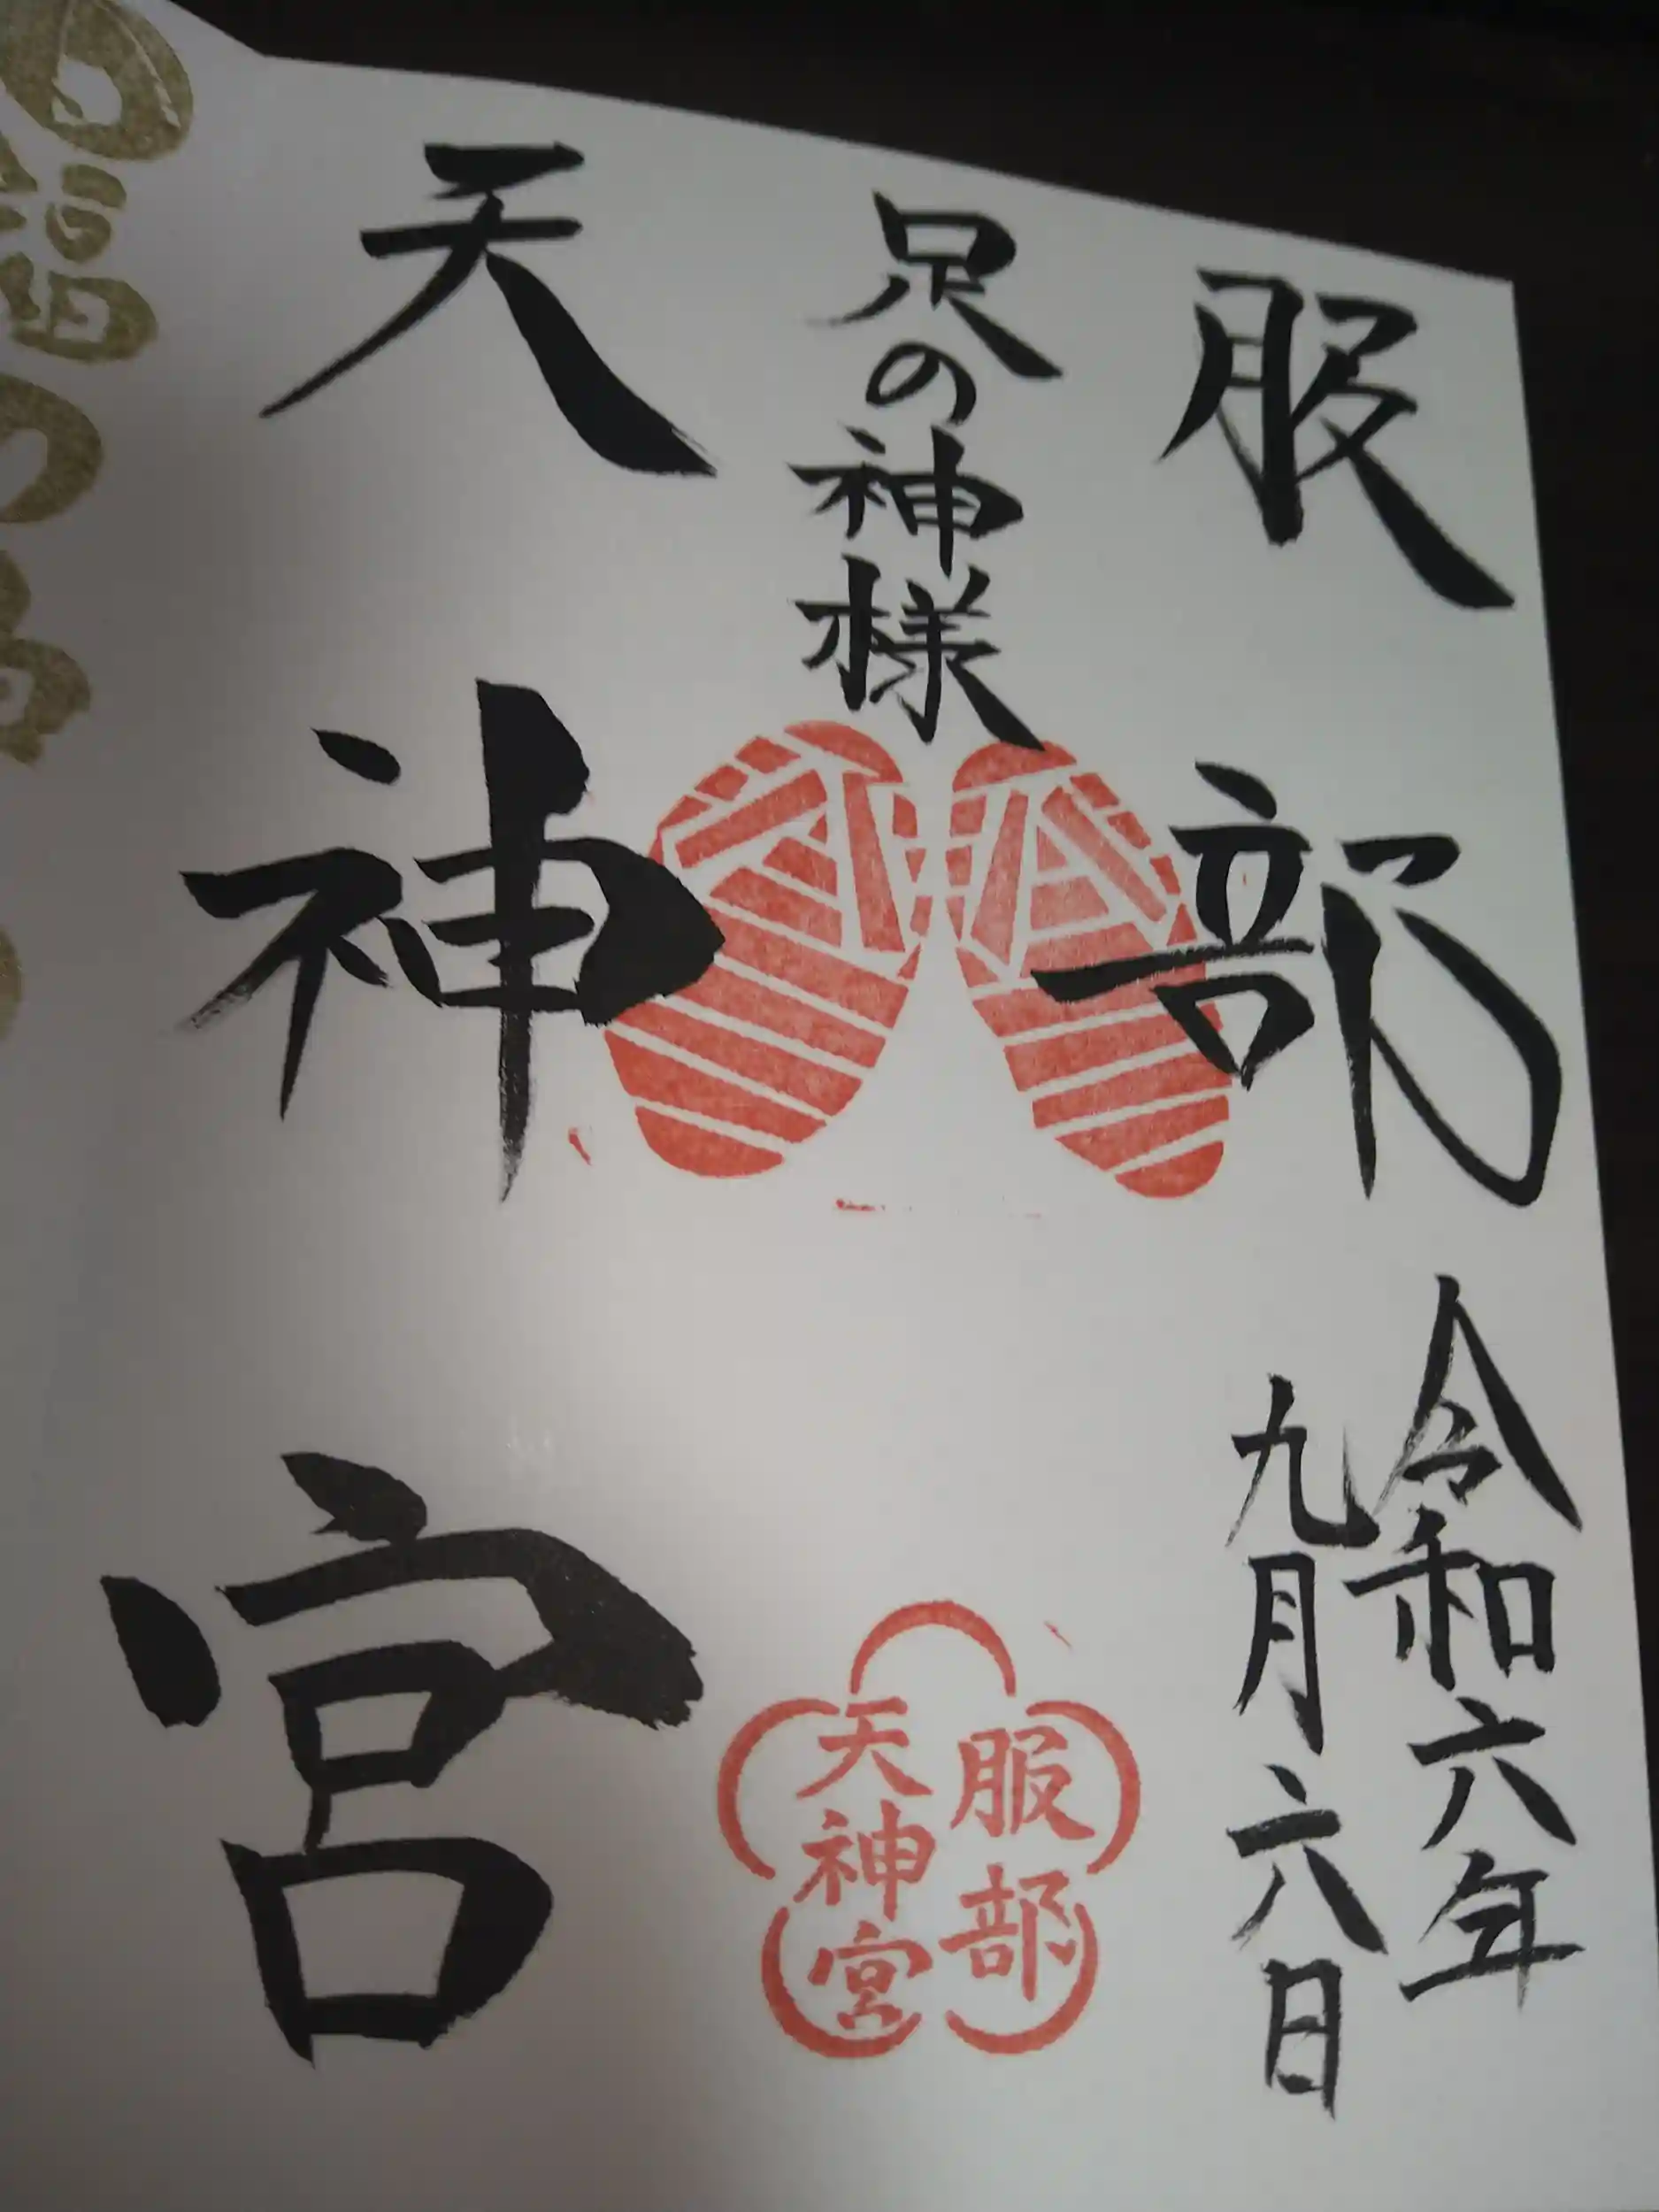 服部
令和六年
九月六日
足の神様
服部
天神宮
天神宮